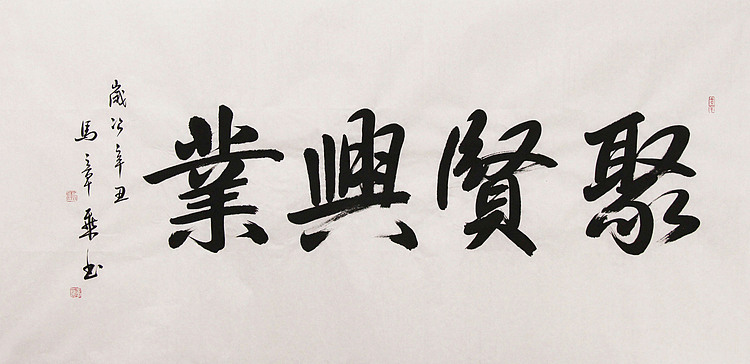 聚賢興業
歲次辛丑
馬章乘书